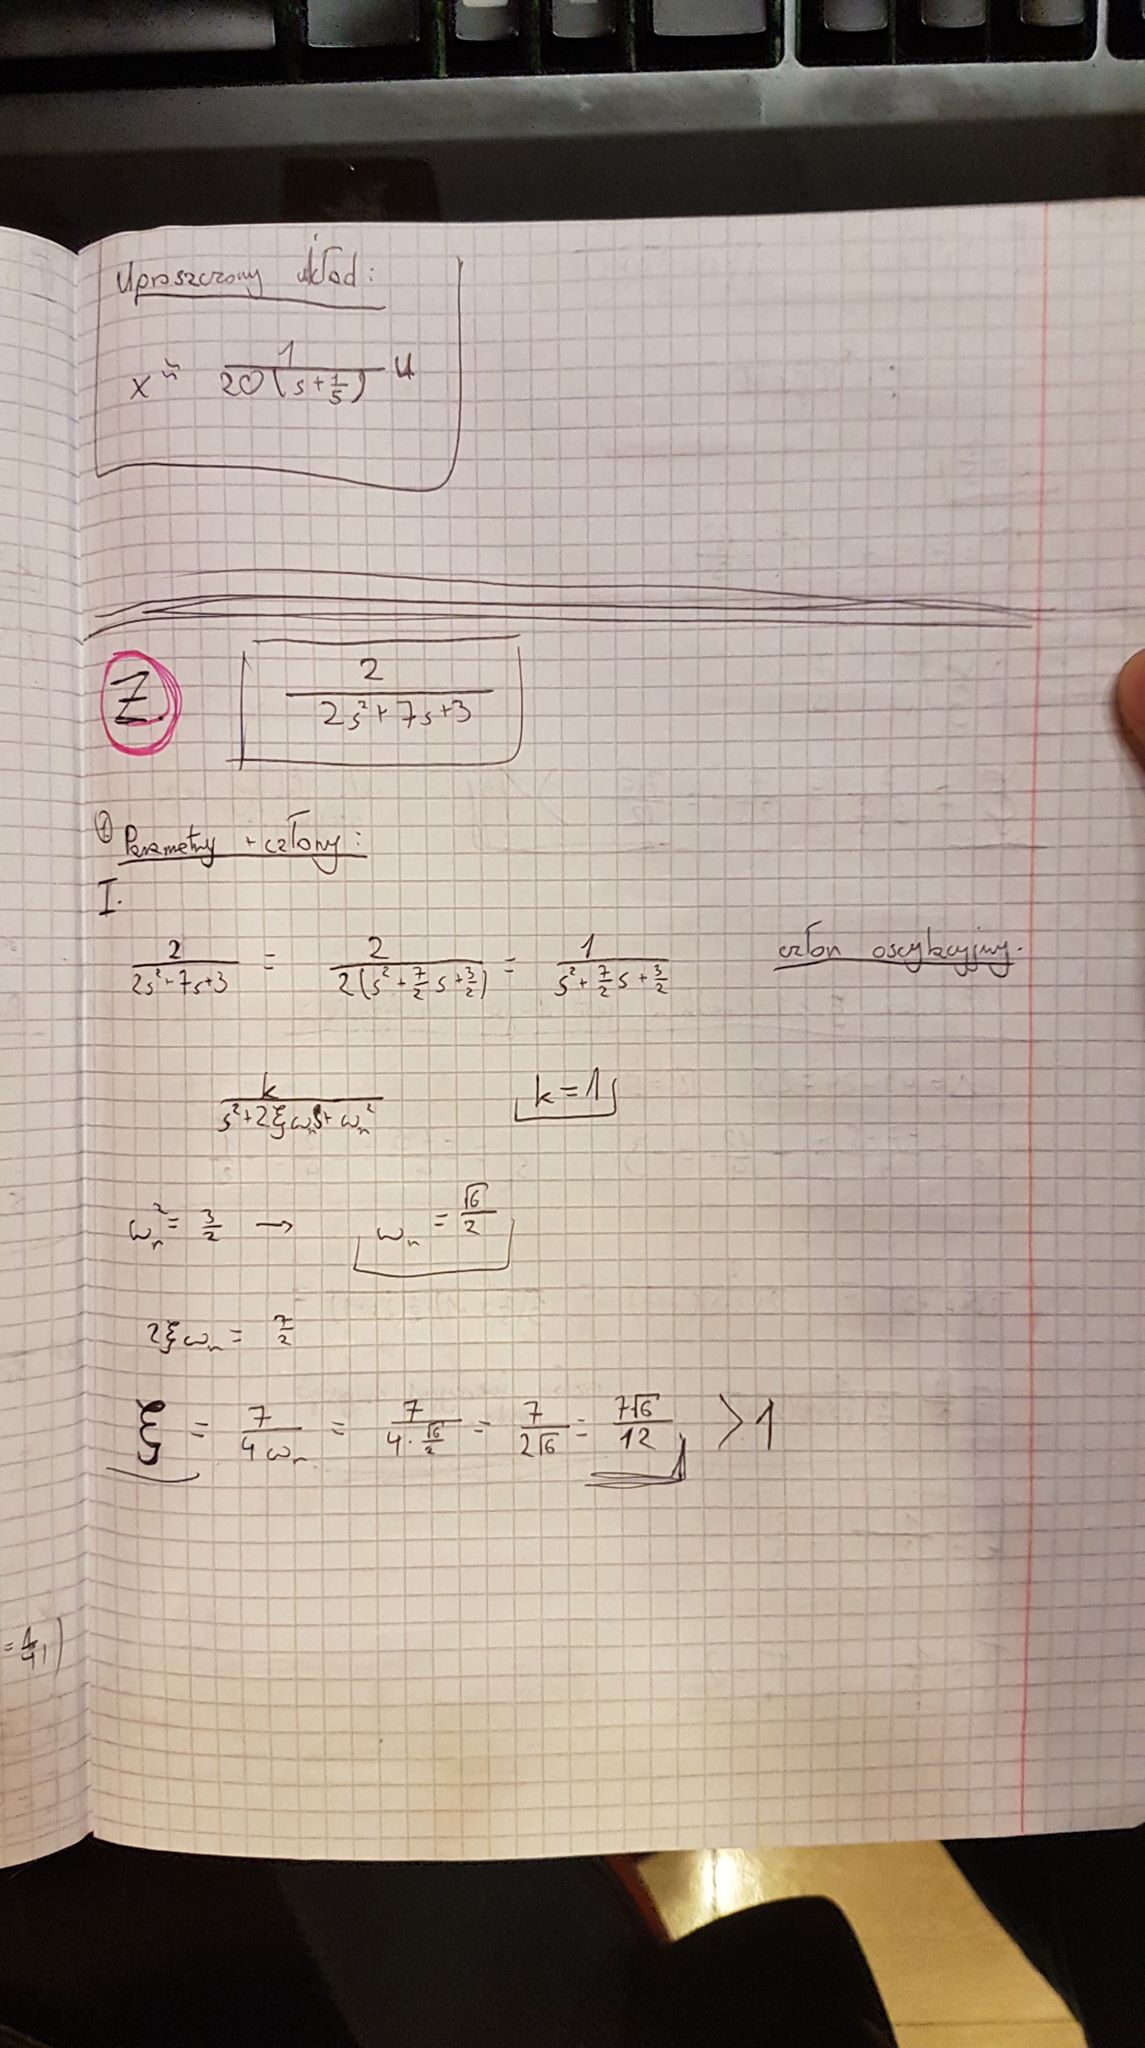 Uproszczony układ:
x ≈ 1/20(s+1/5) u
Z. 2/2s²+7s+3
① Parametry + człony:
I.
2/2s²+7s+3 = 2/2(s²+7/2s+3/2) = 1/s²+7/2s+3/2 człon oscylacyjny.
k/s²+2ξωₙs+ωₙ² k=1
ωₙ² = 3/2 → ωₙ = √6/2
2ξωₙ = 7/2
ξ = 7/4ωₙ = 7/4·√6/2 = 7/2√6 = 7√6/12 >1